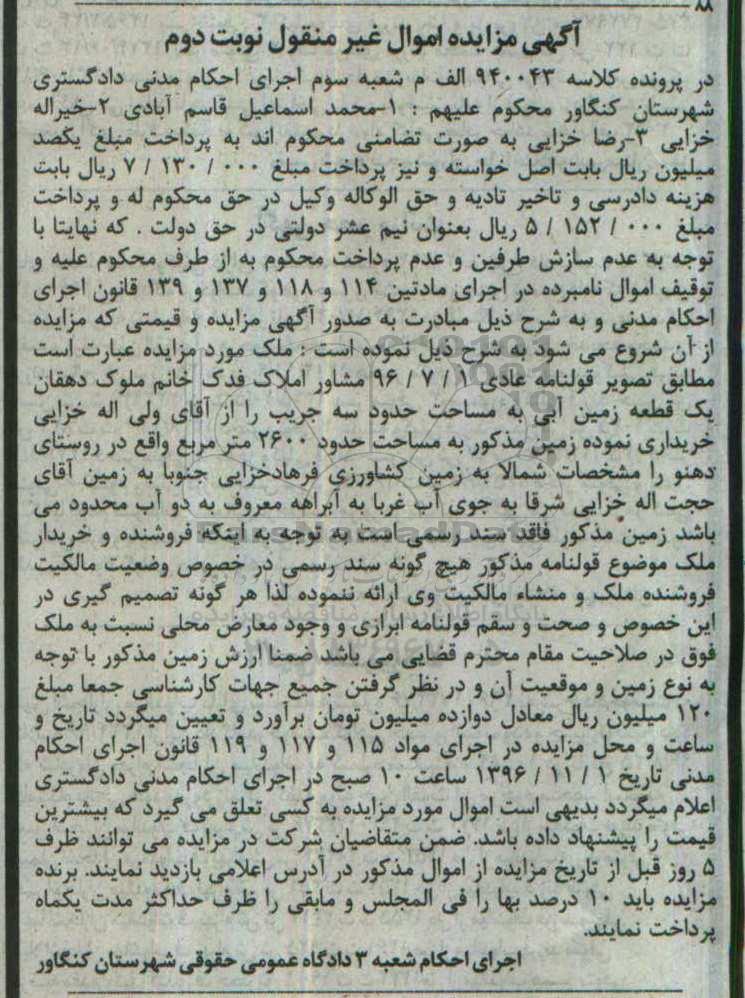 ۸۸
آگهی مزایده اموال غیر منقول نوبت دوم
در پرونده کلاسه ۹۴۰۰۴۳ الف م شعبه سوم اجرای احکام مدنی دادگستری
شهرستان کنگاور محکوم علیهم : ۱-محمد اسماعیل قاسم آبادی ۲-خیراله
خزایی ۳-رضا خزایی به صورت تضامنی محکوم اند به پرداخت مبلغ یکصد
میلیون ریال بابت اصل خواسته و نیز پرداخت مبلغ ۰۰۰ / ۱۳۰ / ۷ ریال بابت
هزینه دادرسی و تاخیر تادیه و حق الوکاله وکیل در حق محکوم له و پرداخت
مبلغ ۰۰۰ / ۱۵۲ / ۵ ریال بعنوان نیم عشر دولتی در حق دولت . که نهایتا با
توجه به عدم سازش طرفین و عدم پرداخت محکوم به از طرف محکوم علیه و
توقیف اموال نامبرده در اجرای مادتین ۱۱۴ و ۱۱۸ و ۱۳۷ و ۱۳۹ قانون اجرای
احکام مدنی و به شرح ذیل مبادرت به صدور آگهی مزایده و قیمتی که مزایده
از آن شروع می شود به شرح ذیل نموده است : ملک مورد مزایده عبارت است
مطابق تصویر قولنامه عادی ۱ / ۷ / ۹۶ مشاور املاک فدک خانم ملوک دهقان
یک قطعه زمین آبی به مساحت حدود سه جریب را از آقای ولی اله خزایی
خریداری نموده زمین مذکور به مساحت حدود ۲۶۰۰ متر مربع واقع در روستای
دهنو را مشخصات شمالا به زمین کشاورزی فرهادخزایی جنوبا به زمین آقای
حجت اله خزایی شرقا به جوی آب غربا به آبراهه معروف به دو آب محدود می
باشد زمین مذکور فاقد سند رسمی است به توجه به اینکه فروشنده و خریدار
ملک موضوع قولنامه مذکور هیچ گونه سند رسمی در خصوص وضعیت مالکیت
فروشنده ملک و منشاء مالکیت وی ارائه ننموده لذا هر گونه تصمیم گیری در
این خصوص و صحت و سقم قولنامه ابرازی و وجود معارض محلی نسبت به ملک
فوق در صلاحیت مقام محترم قضایی می باشد ضمنا ارزش زمین مذکور با توجه
به نوع زمین و موقعیت آن و در نظر گرفتن جمیع جهات کارشناسی جمعا مبلغ
۱۲۰ میلیون ریال معادل دوازده میلیون تومان برآورد و تعیین میگردد تاریخ و
ساعت و محل مزایده در اجرای مواد ۱۱۵ و ۱۱۷ و ۱۱۹ قانون اجرای احکام
مدنی تاریخ ۱ / ۱۱ / ۱۳۹۶ ساعت ۱۰ صبح در اجرای احکام مدنی دادگستری
اعلام میگردد بدیهی است اموال مورد مزایده به کسی تعلق می گیرد که بیشترین
قیمت را پیشنهاد داده باشد. ضمن متقاضیان شرکت در مزایده می توانند ظرف
۵ روز قبل از تاریخ مزایده از اموال مذکور در آدرس اعلامی بازدید نمایند. برنده
مزایده باید ۱۰ درصد بها را فی المجلس و مابقی را ظرف حداکثر مدت یکماه
پرداخت نمایند.
اجرای احکام شعبه ۳ دادگاه عمومی حقوقی شهرستان کنگاور